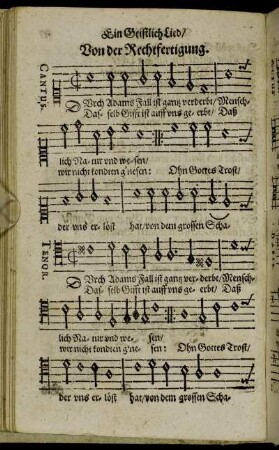 Ein Geistlich Lied/
Von der Rechtfertigung.
CANTUS.
DUrch Adams Fall ist gantz verderbt/ Mensch-
Das- selb Gifft ist auff vns ge- erbt/ Daß
lich Na- tur vnd we- sen/
wir nicht kondten g'nesen: Ohn Gottes Trost/
der vns er- löst hat/ von dem grossen Scha-
TENOR.
DUrch Adams Fall ist gantz ver- derbt/ Mensch-
Das- selb Gifft ist auff vns ge- erbt/ Daß
lich Na- tur vnd we- sen/
wir nicht kondten g'ne- sen: Ohn Gottes Trost/
der vns er- löst hat/ von dem grossen Scha-